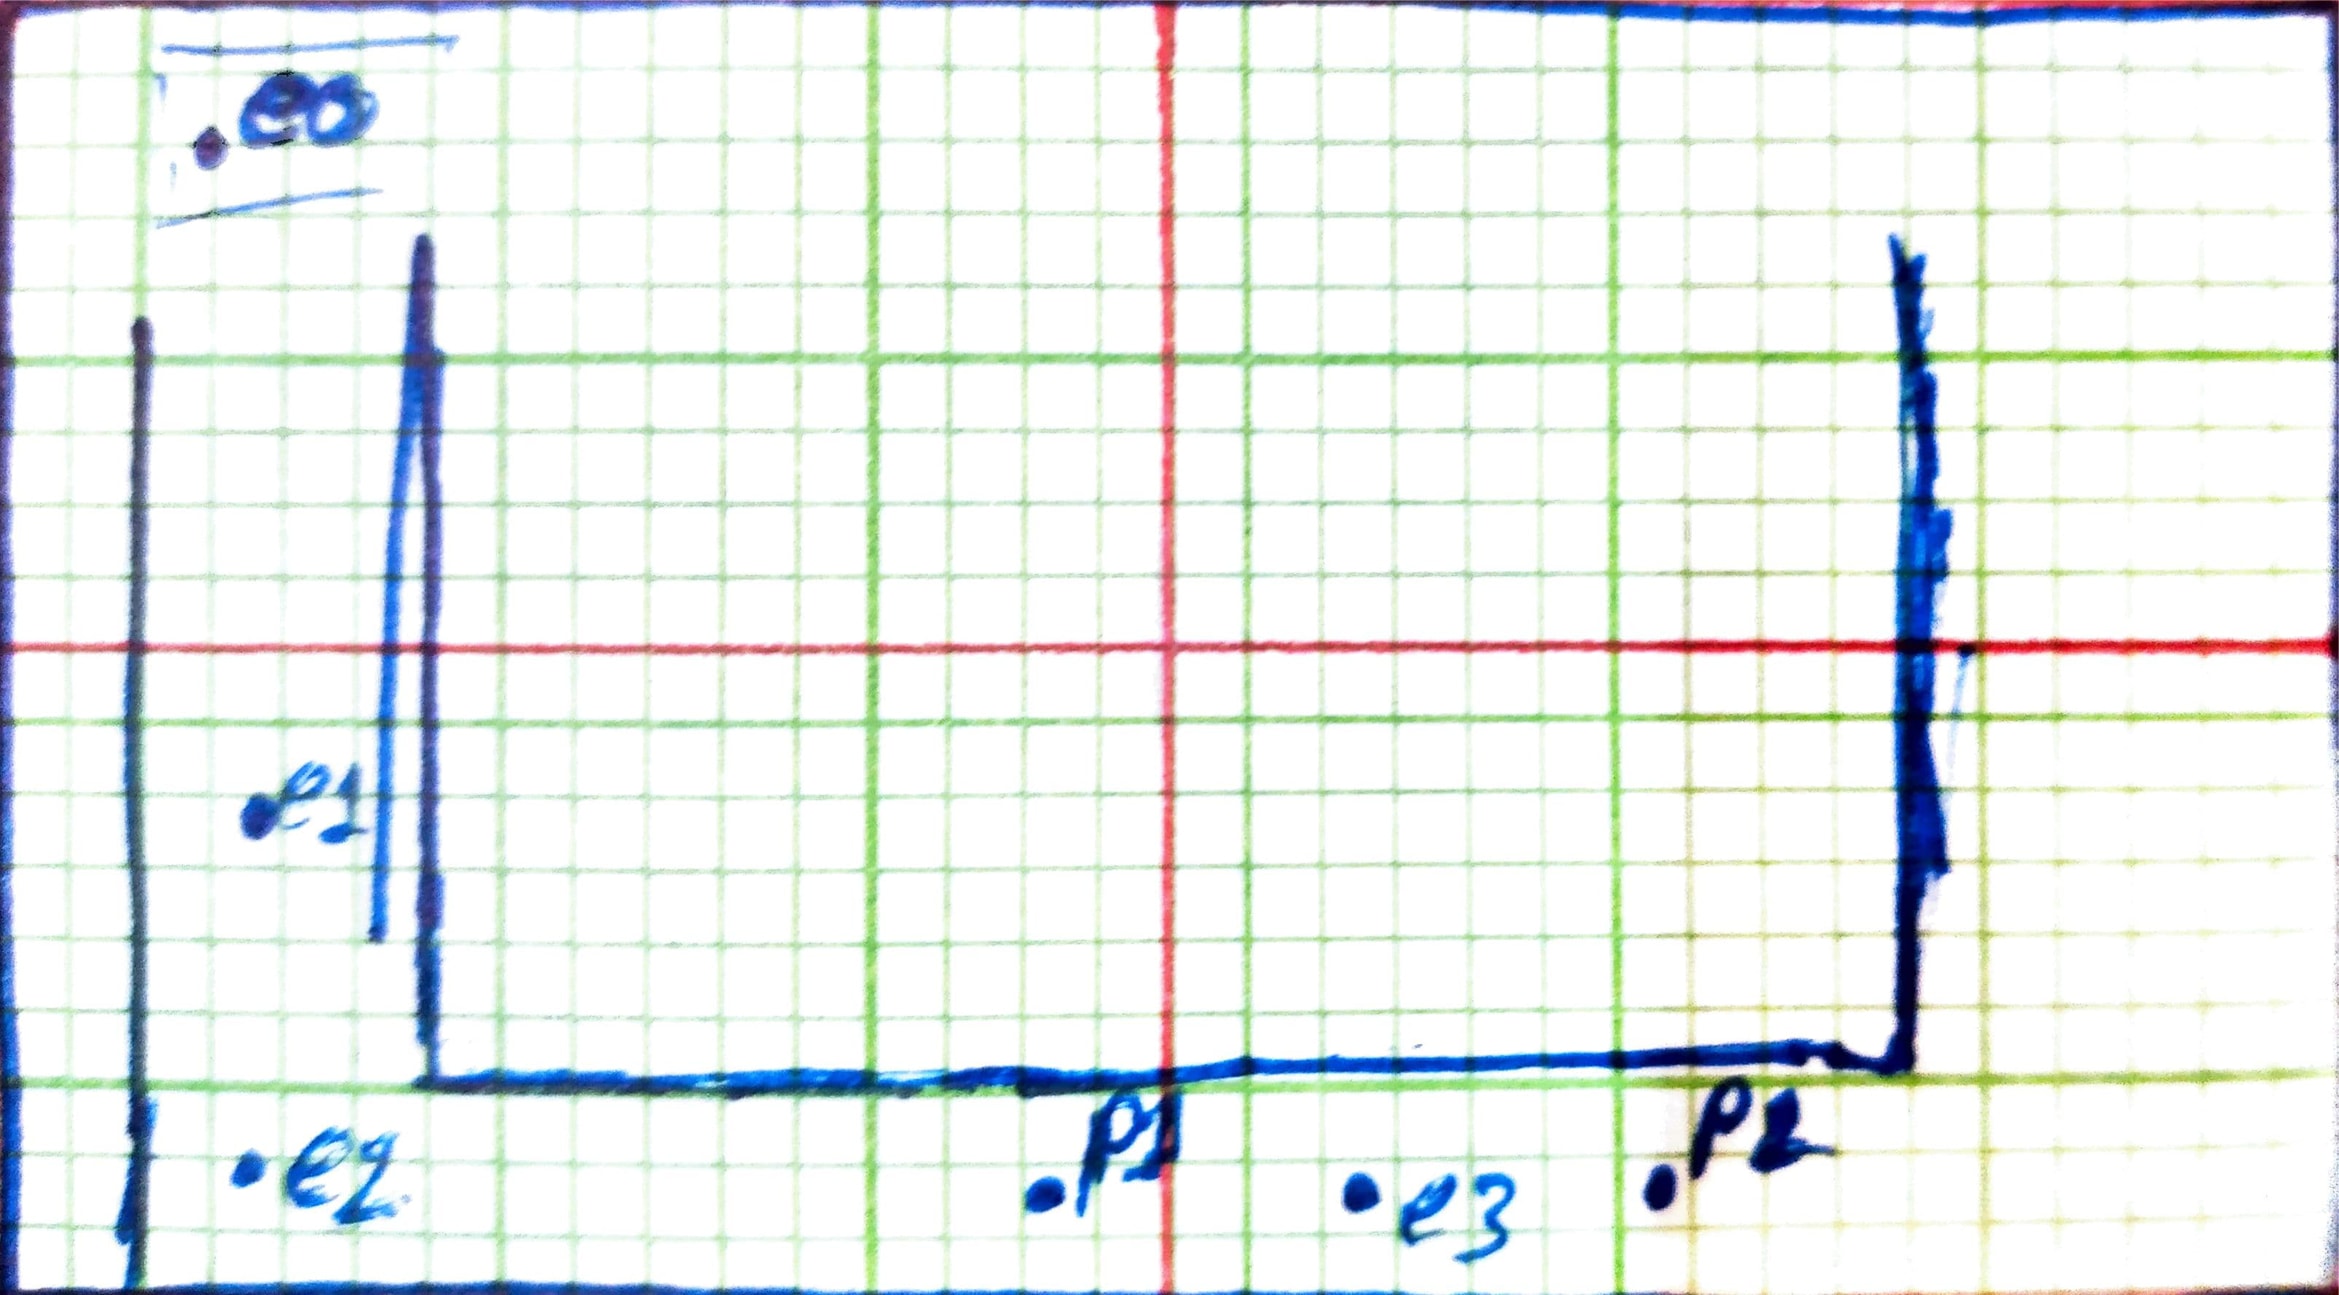 .e0
.e1
.e2
.p1
.e3
.p2